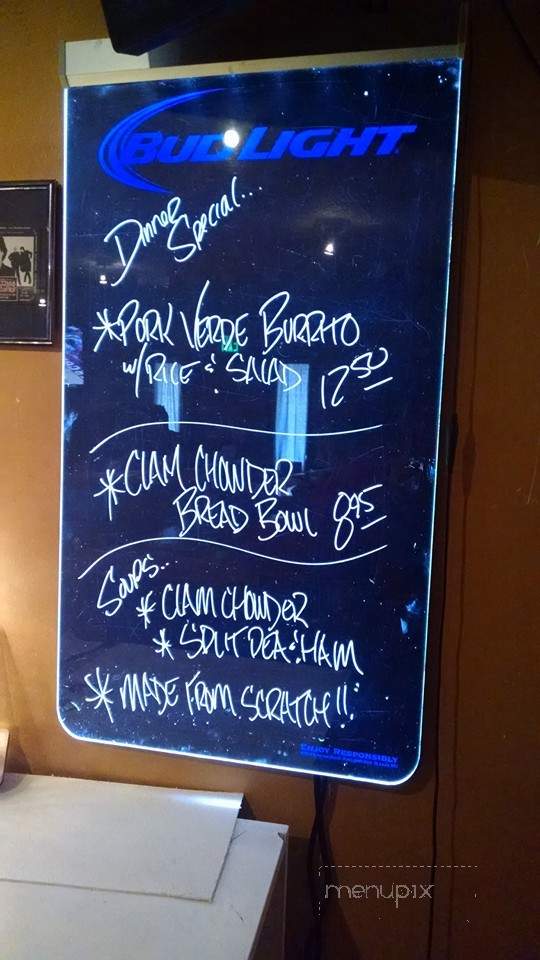 BUD LIGHT
Dinner
Special...
*PORK VERDE BURRITO
w/RICE & SALAD 12 50
*CLAM CHOWDER
BREAD BOWL 8 95
Soups..
* CLAM CHOWDER
* SPLIT PEA & HAM
* MADE FROM SCRATCH!!
ENJOY RESPONSIBLY
menupix